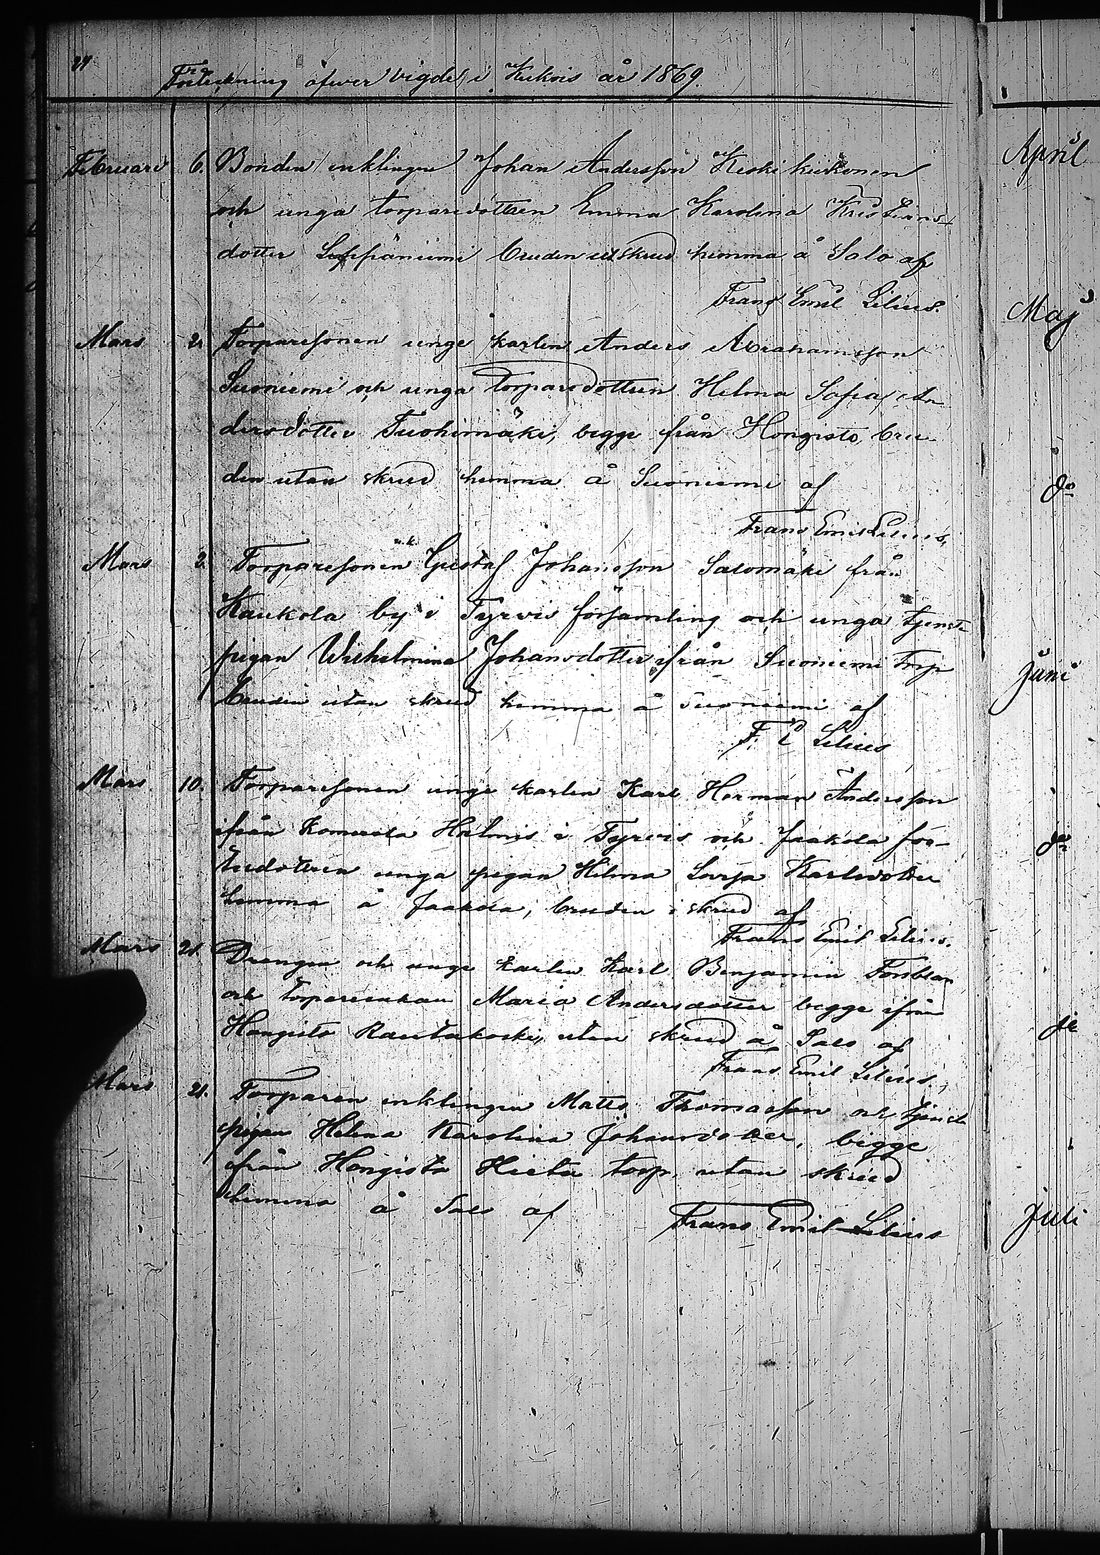 Förteckning öfwer vigde i Kiikois år 1869.
Februari 6. Bonden enklingen Johan Andersson Keski kiikonen
och unga torparedottren Emma Karolina Kristians
dotter Leppäniemi bruden utskrud hemma å Salo af
Frans Emil Lilius.
Mars 2. Torparesonen unge karlen Anders Abrahamsson
Suoniemi och unga Torparedottren Helma Sofia An
dersdotter Tuohimäki, begge från Hongisto, bru
den utan skrud hemma å Suoniemi af
Frans Emil Lilius,
Mars Torparesonen u.k. Gustaf Johansson Salomäki från
Kaukola by i Tyrvis församling och unga tjenste
pigan Wilhelmina Johansdotter ifrån Suoniemi torp
bruden utan skrud hemma å Suoniemi af
F. E Lilius
Mars 10. Torparesonen unge karlen Karl Herman Andersson
ifrån i Tyrvis och Jaakola
unga pigan Helma Lovisa Karlsdotter
hemma å Jaakola, bruden i skrud af
Frans Emil Lilius.
Mars 21. Drengen och unge karlen Karl Benjamin
och torpareenkan Maria Andersdotter begge ifrån
Hongisto Rautakoski, utan skrud å Salo af
Frans Emil Lilius,
Mars 21. Torparen enklingen Matts Thomasson och tjenste
pigan Helena Karolina Johansdotter, begge
från Hongisto Hieta torp, utan skrud
hemma å Salo af Frans Emil Lilius
April
Maj
do
Juni
do
Juli